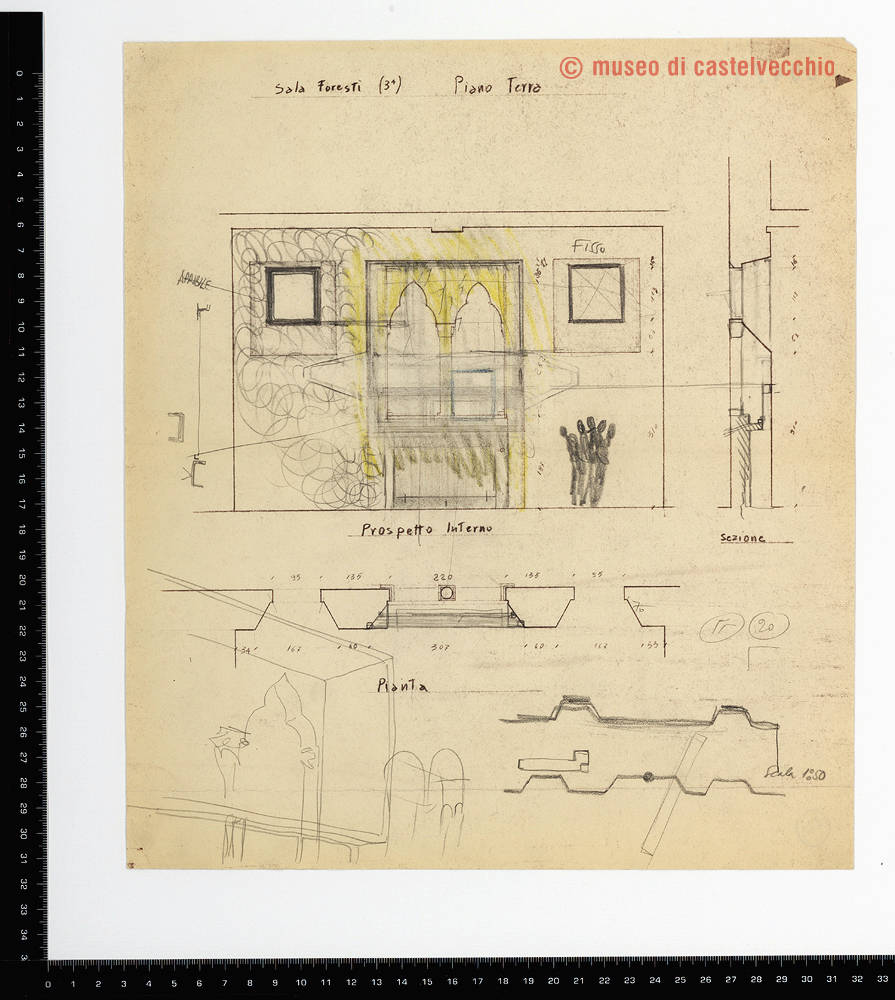 © museo di castelvecchio
Sala Foresti (3ª) Piano Terra
Fisso
APRIBILE
Prospetto Interno
Sezione
95 135 220 135 95
54 162 60 307 60 162 55
70
Tr 20
Pianta
Scala 1:50
0 1 2 3 4 5 6 7 8 9 10 11 12 13 14 15 16 17 18 19 20 21 22 23 24 25 26 27 28 29 30 31 32 33 34
0 1 2 3 4 5 6 7 8 9 10 11 12 13 14 15 16 17 18 19 20 21 22 23 24 25 26 27 28 29 30 31 32 33